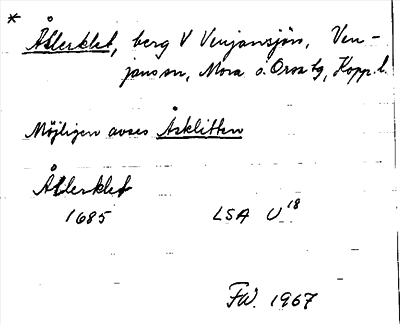 * Ållerklet, berg V Venjansjön, Ven-
jans sn, Mora o. Orsa tg, Kopp. l.
Möjligen avses Åsklitten
Ållerklet
1685 LSA U 18
FW. 1967